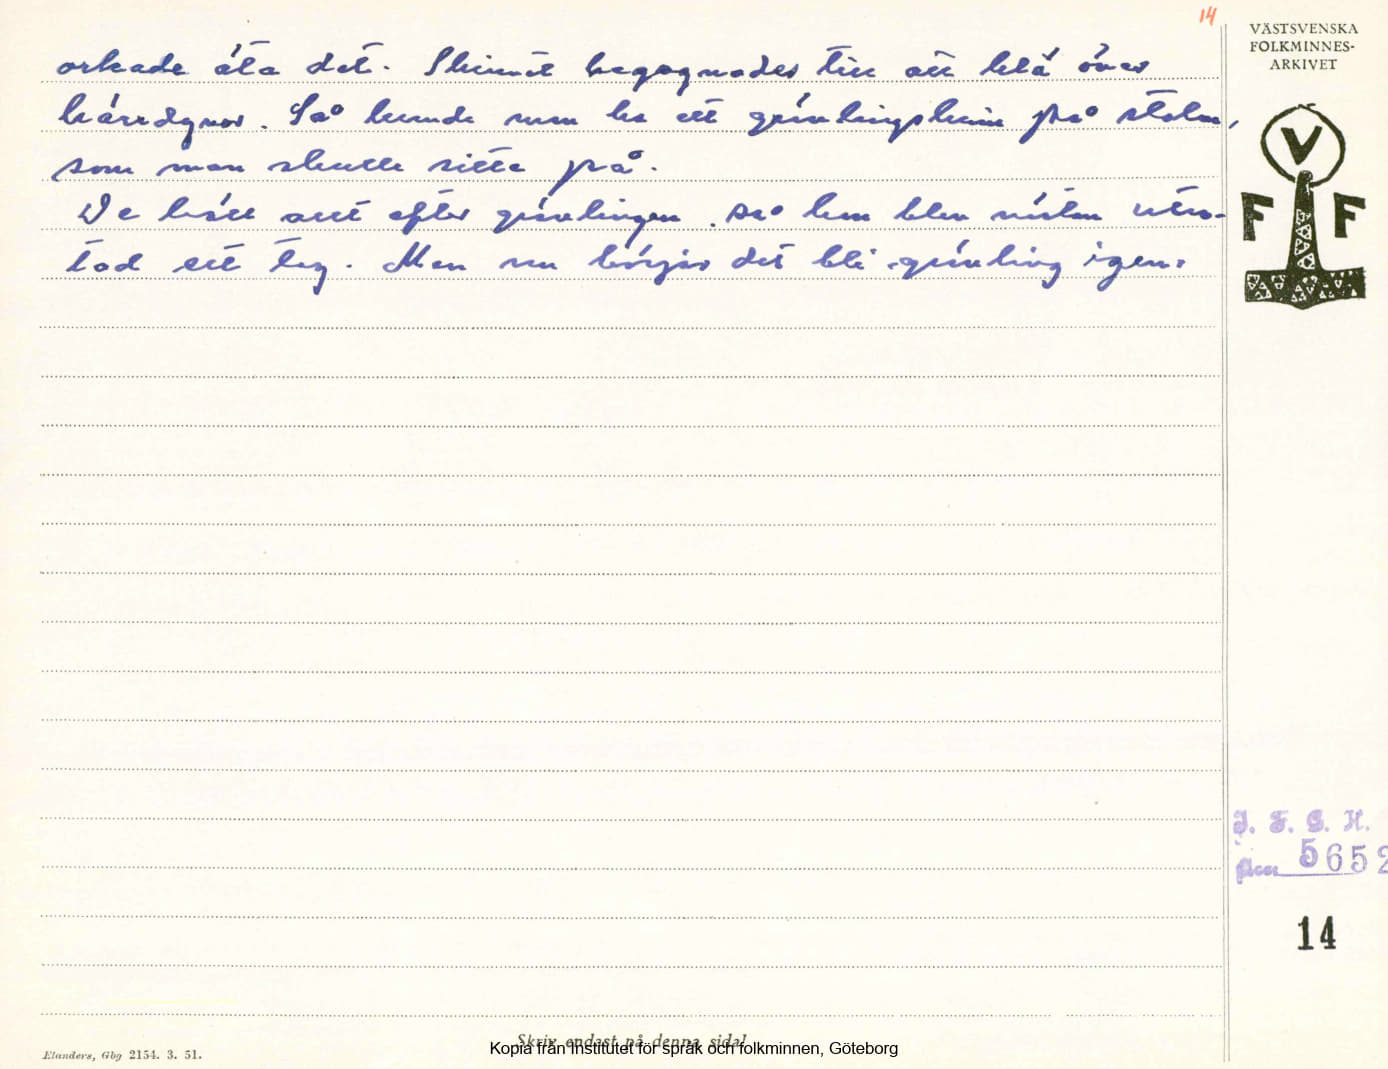 14
VÄSTSVENSKA
FOLKMINNES-
ARKIVET
orkade äta det. Skinnet begagnades till att klä över
kärrdynor. Så kunde man ha ett grävlingskinn på stolen,
som man skulle sitta på.
De höll att efter grävlingen. så han blev nästan utro-
tad ett tag. Men nu börjar det bli grävling igen.
V
F F
I. F. G. H.
5652
14
Skriv endast på denna sida!
Kopia från Institutet för språk och folkminnen, Göteborg
Elanders, Gbg 2154. 3. 51.